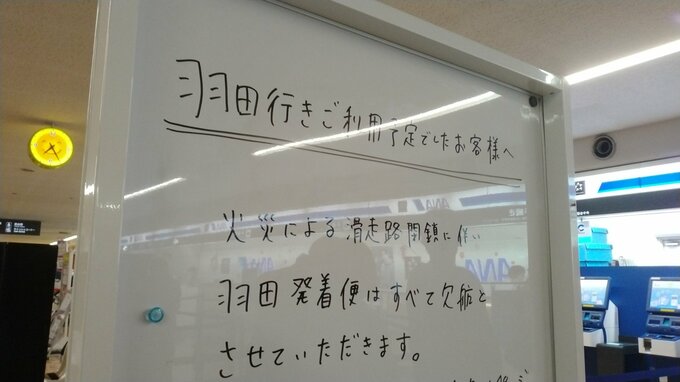 羽田行きご利用予定でしたお客様へ
火災による滑走路閉鎖に伴い
羽田発着便はすべて欠航と
させていただきます。
ANA
ANA